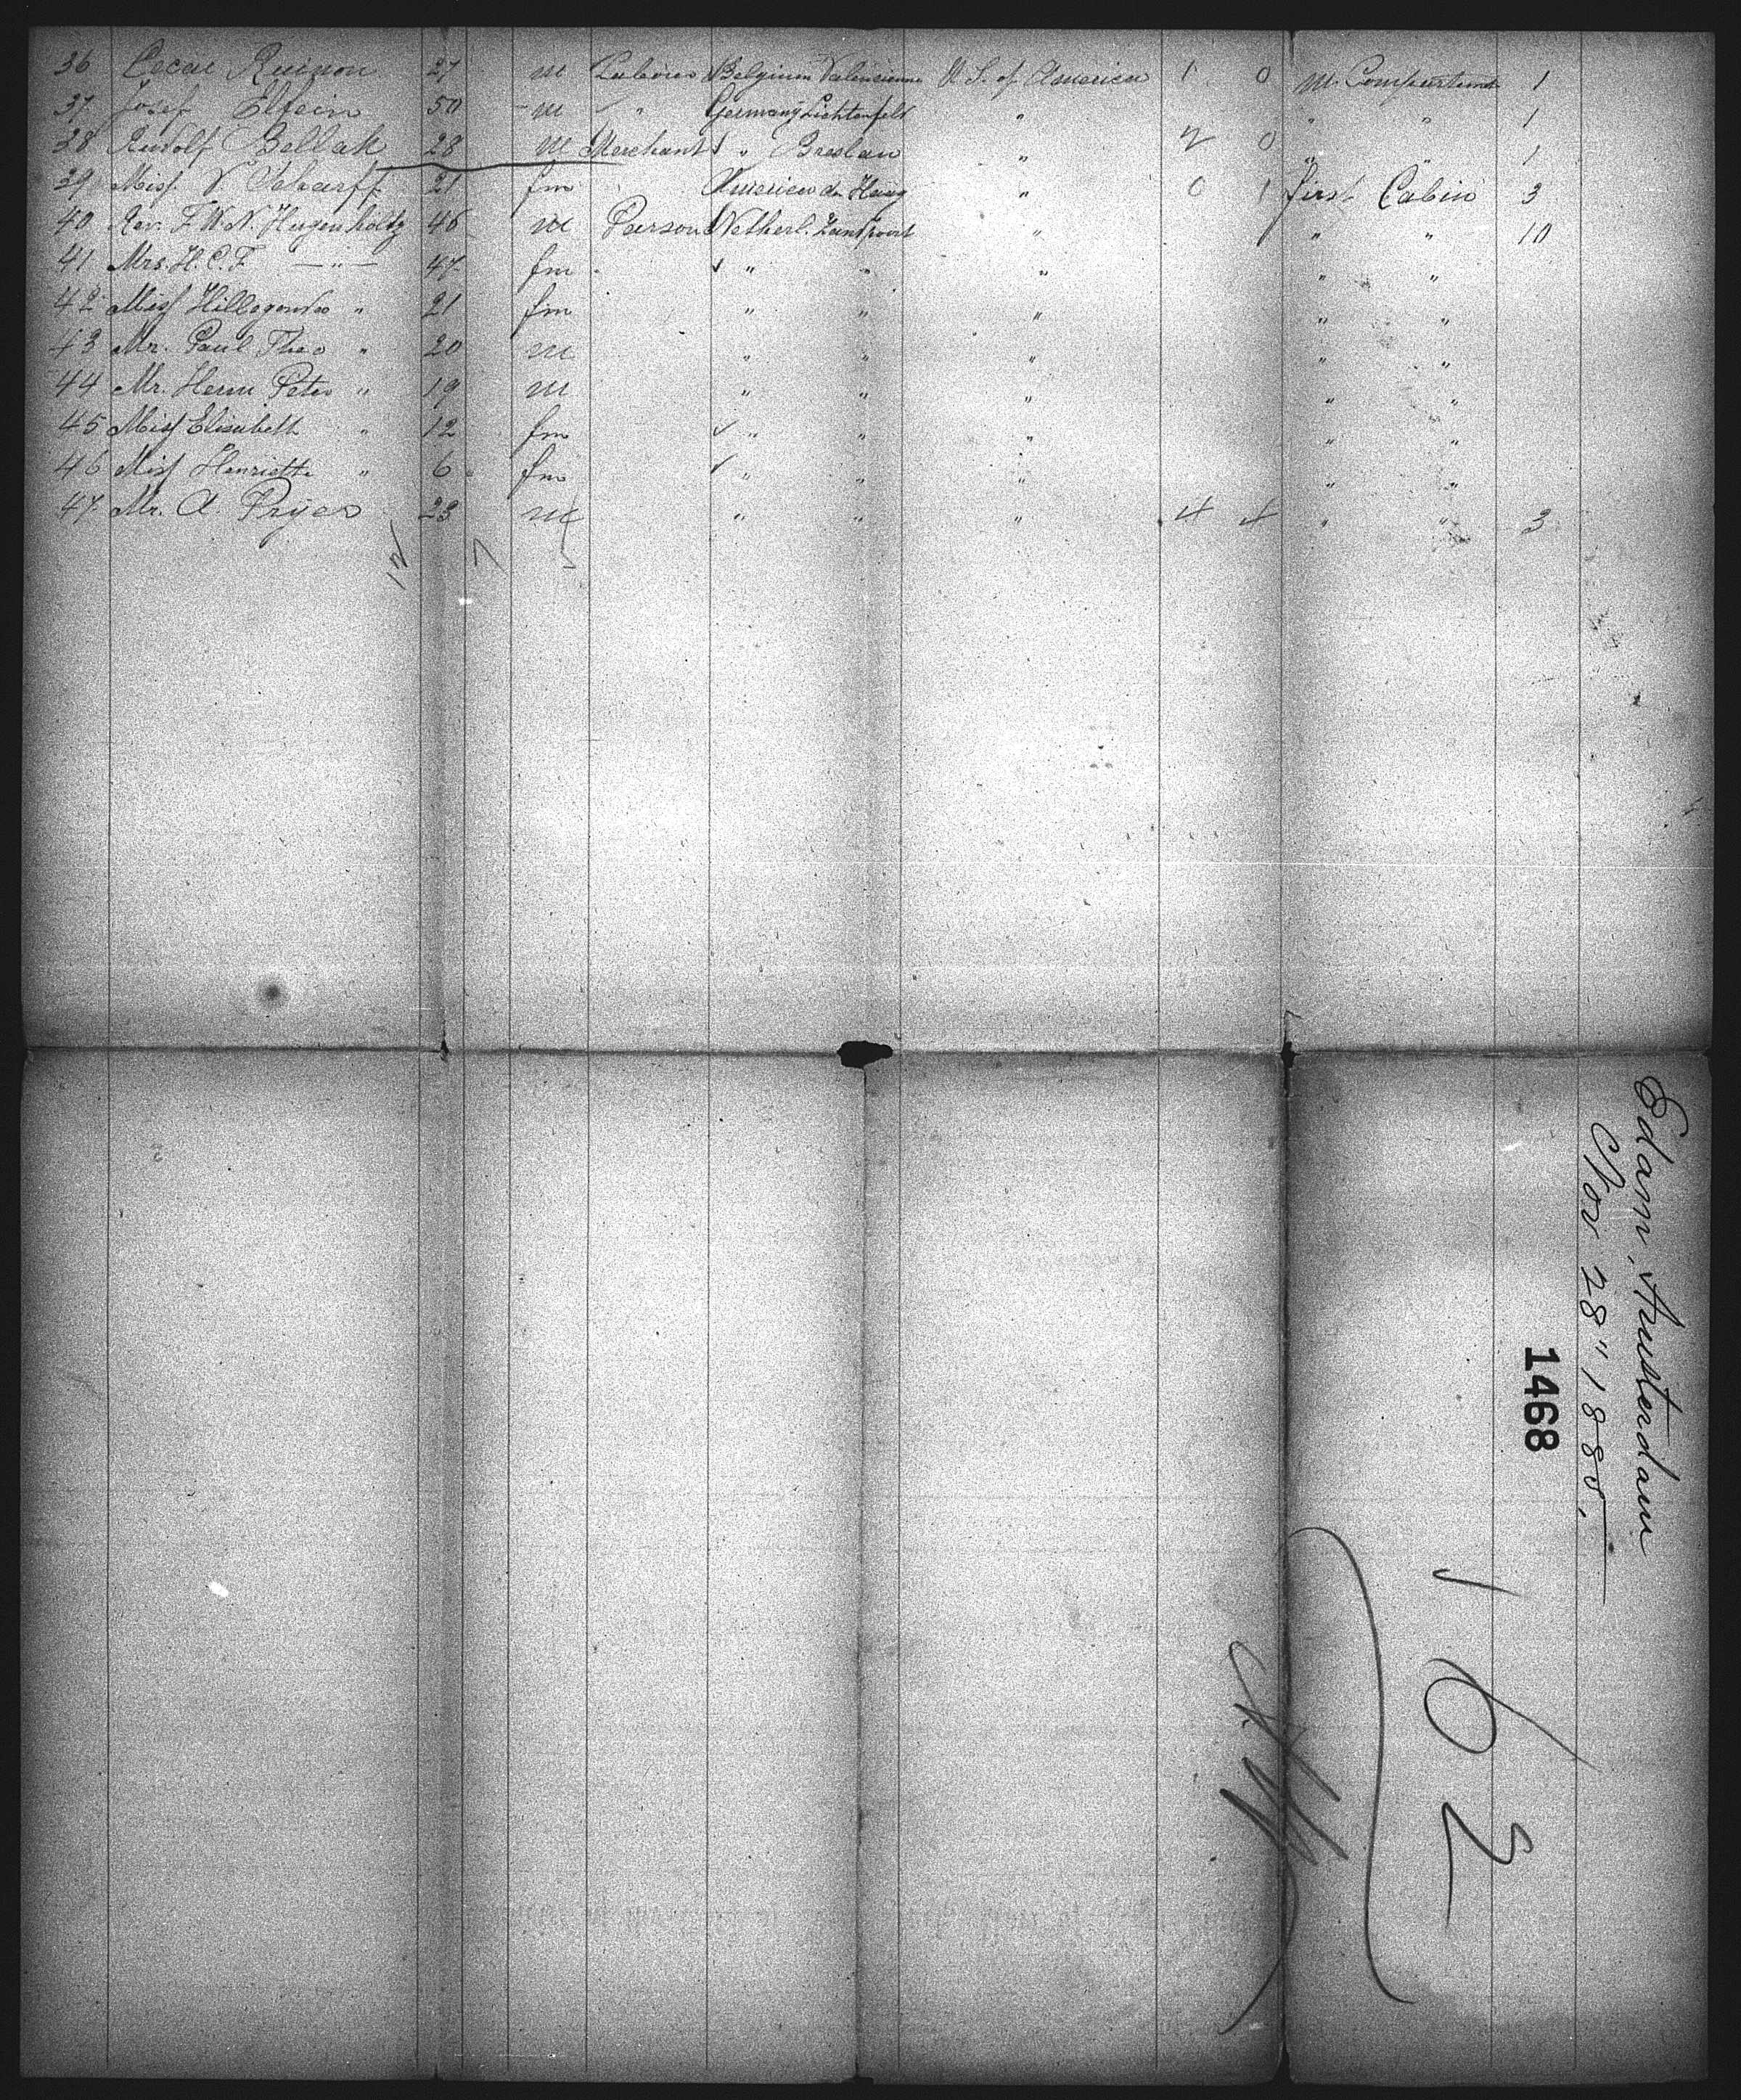 36 Oscar Ruinon 27 m Laborer Belgium Valencienne U. S. of America 1 0 m. Compartment 1
37 Josef Elfein 50 m " Germany Lichtenfels " " " 1
38 Rudolf Bellak 28 m Merchant " Breslau " 2 0 " " 1
39 Miss V Scharff 21 fm America de Haag " 0 1 first Cabin 3
40 Rev. F. W. N. Hugenholtz 46 m Parson Netherl. Zantfoort " " " 10
41 Mrs. H. C. F. — " — 47 fm " " " " "
42 Miss Hillegonda " 21 fm " " " " "
43 Mr. Paul Theo " 20 m " " " " "
44 Mr. Herm Peter " 19 m " " " " "
45 Miss Elisabeth " 12 fm " " " " "
46 Miss Henriette " 6 fm " " " " "
47 Mr. A Pryes 23 m " " " 4 4 " " 3
12 7 5
Edam, Amsterdam
Nov 28" 1885.
1468
162